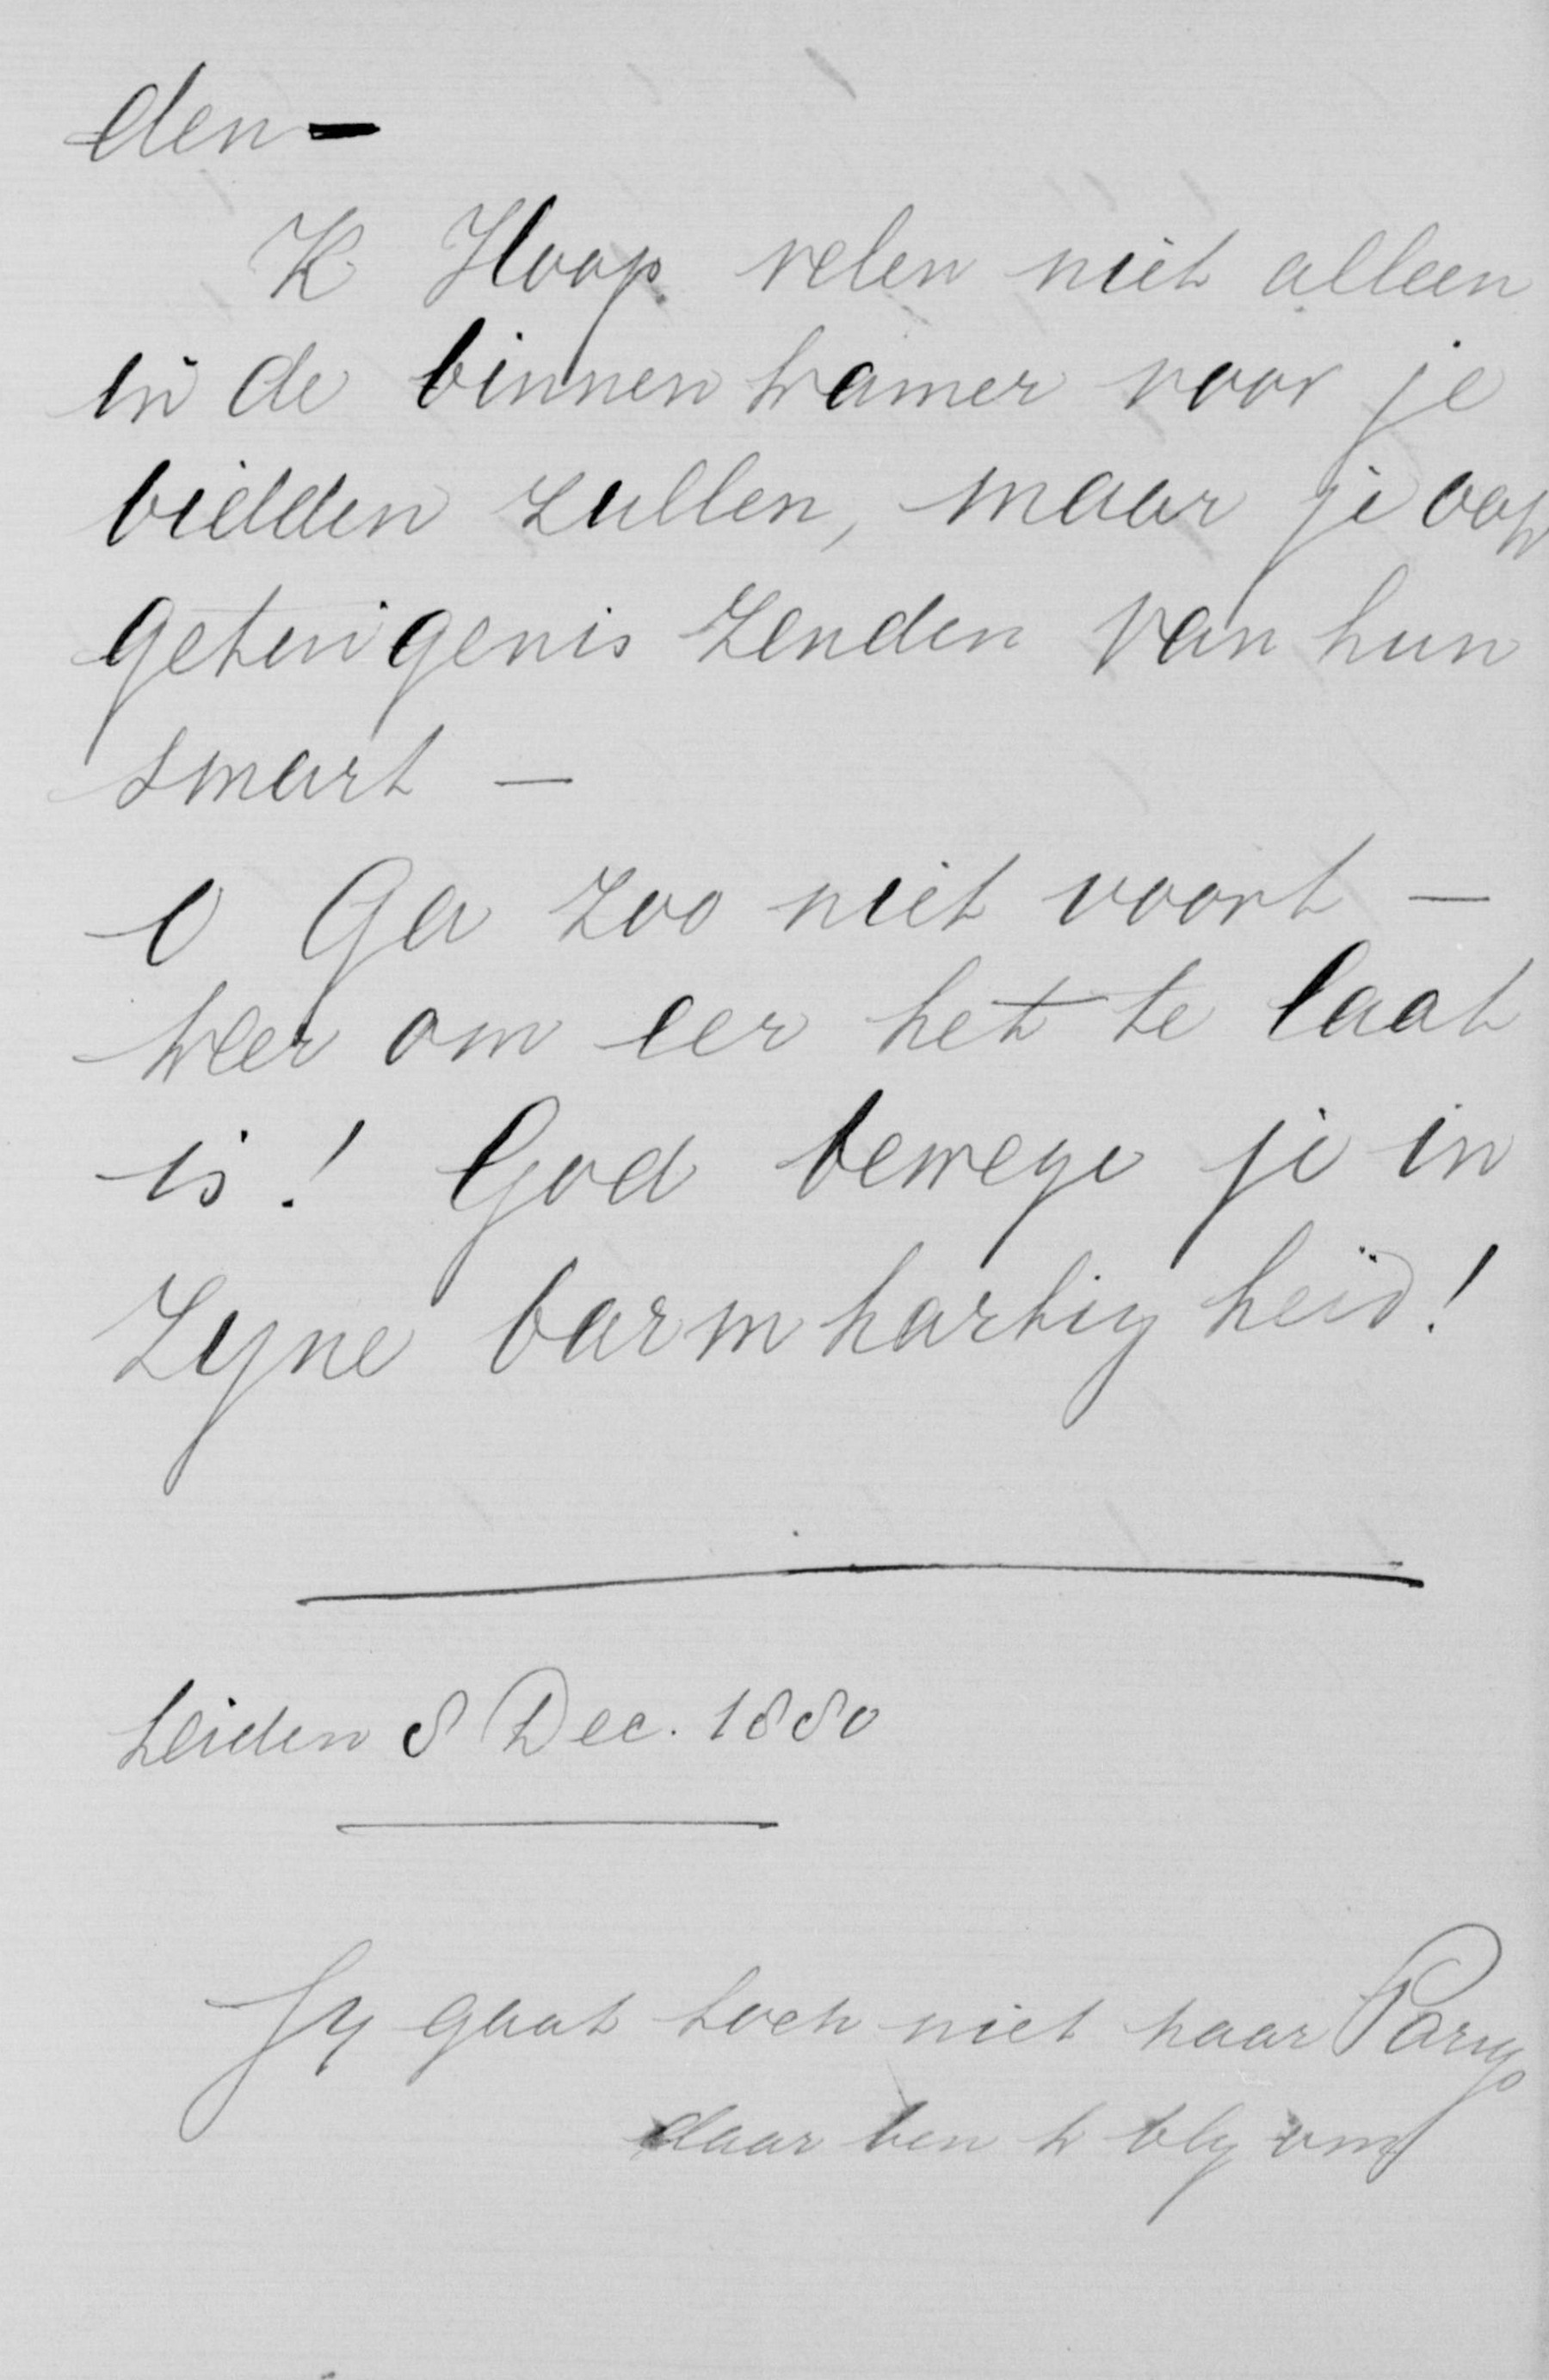 den -
K Hoop velen niet alleen
in de binnenkamer voor je
bidden zullen, maar je ook
getuigenis zenden van hun
smart -
O Ga zoo niet voort -
keer om eer het te laat
is! God bewege je in
Zyne barmhartigheid!
Leiden 8 Dec. 1880
Jy gaat toch niet naar Parys
daar ben k bly om